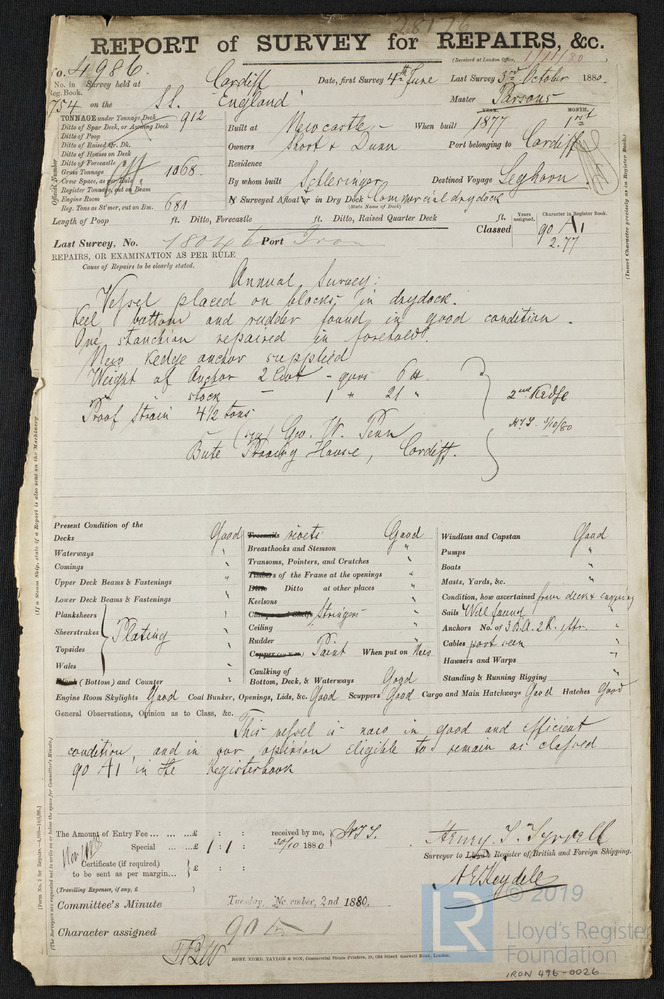 REPORT of SURVEY for REPAIRS, &c.
(Received at London Office, 1/11/80)
No. 4986.
No. in Reg. Book. Survey held at Cardiff Date, first Survey 4th June Last Survey 3rd October 1880.
754 on the S.S. England Master Parsons
TONNAGE under Tonnage Deck 912
Ditto of Spar Deck, or Awning Deck
Ditto of Poop
Ditto of Raised Qr. Dk.
Ditto of Houses on Deck
Ditto of Forecastle
Gross Tonnage 1068.
Crew Space, as per Rule
Register Tonnage, cut on Beam
Engine Room
Reg. Tons as St'mer, cut on Bm. 681
Official Number
YEAR. MONTH.
Built at Newcastle When built 1877 1 mt
Owners Short & Dunn Port belonging to Cardiff
Residence
By whom built Schlesinger Destined Voyage Leghorn
If Surveyed Afloat or in Dry Dock Commercial dry dock
(State Name of Dock)
Length of Poop ft. Ditto, Forecastle ft. Ditto, Raised Quarter Deck ft.
Years assigned, Character in Register Book.
Classed 90 A1
2.77
(Insert Character precisely as in Register Book.)
Last Survey, No. 18046 Port Iron
REPAIRS, OR EXAMINATION AS PER RULE
Cause of Repairs to be clearly stated.
Annual Survey:
Vessel placed on blocks in drydock.
Keel bottom and rudder found in good condition.
One stanchion repaired in forehold.
New Kedge anchor supplied
Weight of Anchor 2 Cwt - qurs 6 lbs
stock — 1 " 21 "
2nd Kedge
Proof Strain 4½ tons
(sgd) Geo. W. Penn
Bute Proving House, Cardiff.
(If a Steam Ship, state if a Report is also sent on the Machinery
Present Condition of the
Decks Good
Waterways "
Comings "
Upper Deck Beams & Fastenings "
Lower Deck Beams & Fastenings "
Planksheers
Sheerstrakes
Plating
Topsides
Wales
(Bottom) and Counter "
Treenails rivets Good
Breasthooks and Stemson "
Transoms, Pointers, and Crutches "
Timbers of the Frame at the openings "
Ditto Ditto at other places "
Keelsons "
Stringers "
Ceiling "
Rudder "
Paint When put on New
Caulking of
Bottom, Deck, & Waterways Good
Windlass and Capstan Good
Pumps "
Boats "
Masts, Yards, &c. "
Condition, how ascertained from deck & enquiry
Sails Well found "
Anchors No. of 3 B.A. 2 K. 1 Str. "
Cables part seen "
Hawsers and Warps "
Standing & Running Rigging "
Engine Room Skylights Good Coal Bunker, Openings, Lids, &c. Good Scuppers Good Cargo and Main Hatchways Good Hatches Good
General Observations, Opinion as to Class, &c.
This vessel is now in good and efficient
condition and in our opinion eligible to remain as classed
90 A1 in the Registerbook
The Amount of Entry Fee ... ... ...£ : : received by me,
Special ... ...£ 1 : 1 : 30/10 1880
Certificate (if required)
to be sent as per margin... £ : :
(Travelling Expenses, if any, £ )
Henry T. Tyrrell
Surveyor to Lloyd's Register of British and Foreign Shipping.
A E Keydell
Committee's Minute Tuesday, November, 2nd 1880.
Character assigned 90 A 1
ROBT. TODD, TAYLOR & SON, Commercial Steam Printers, 19, Old Street Goswell Road, London.
© 2019
LR
Lloyd's Register
Foundation
IRON 496-0026